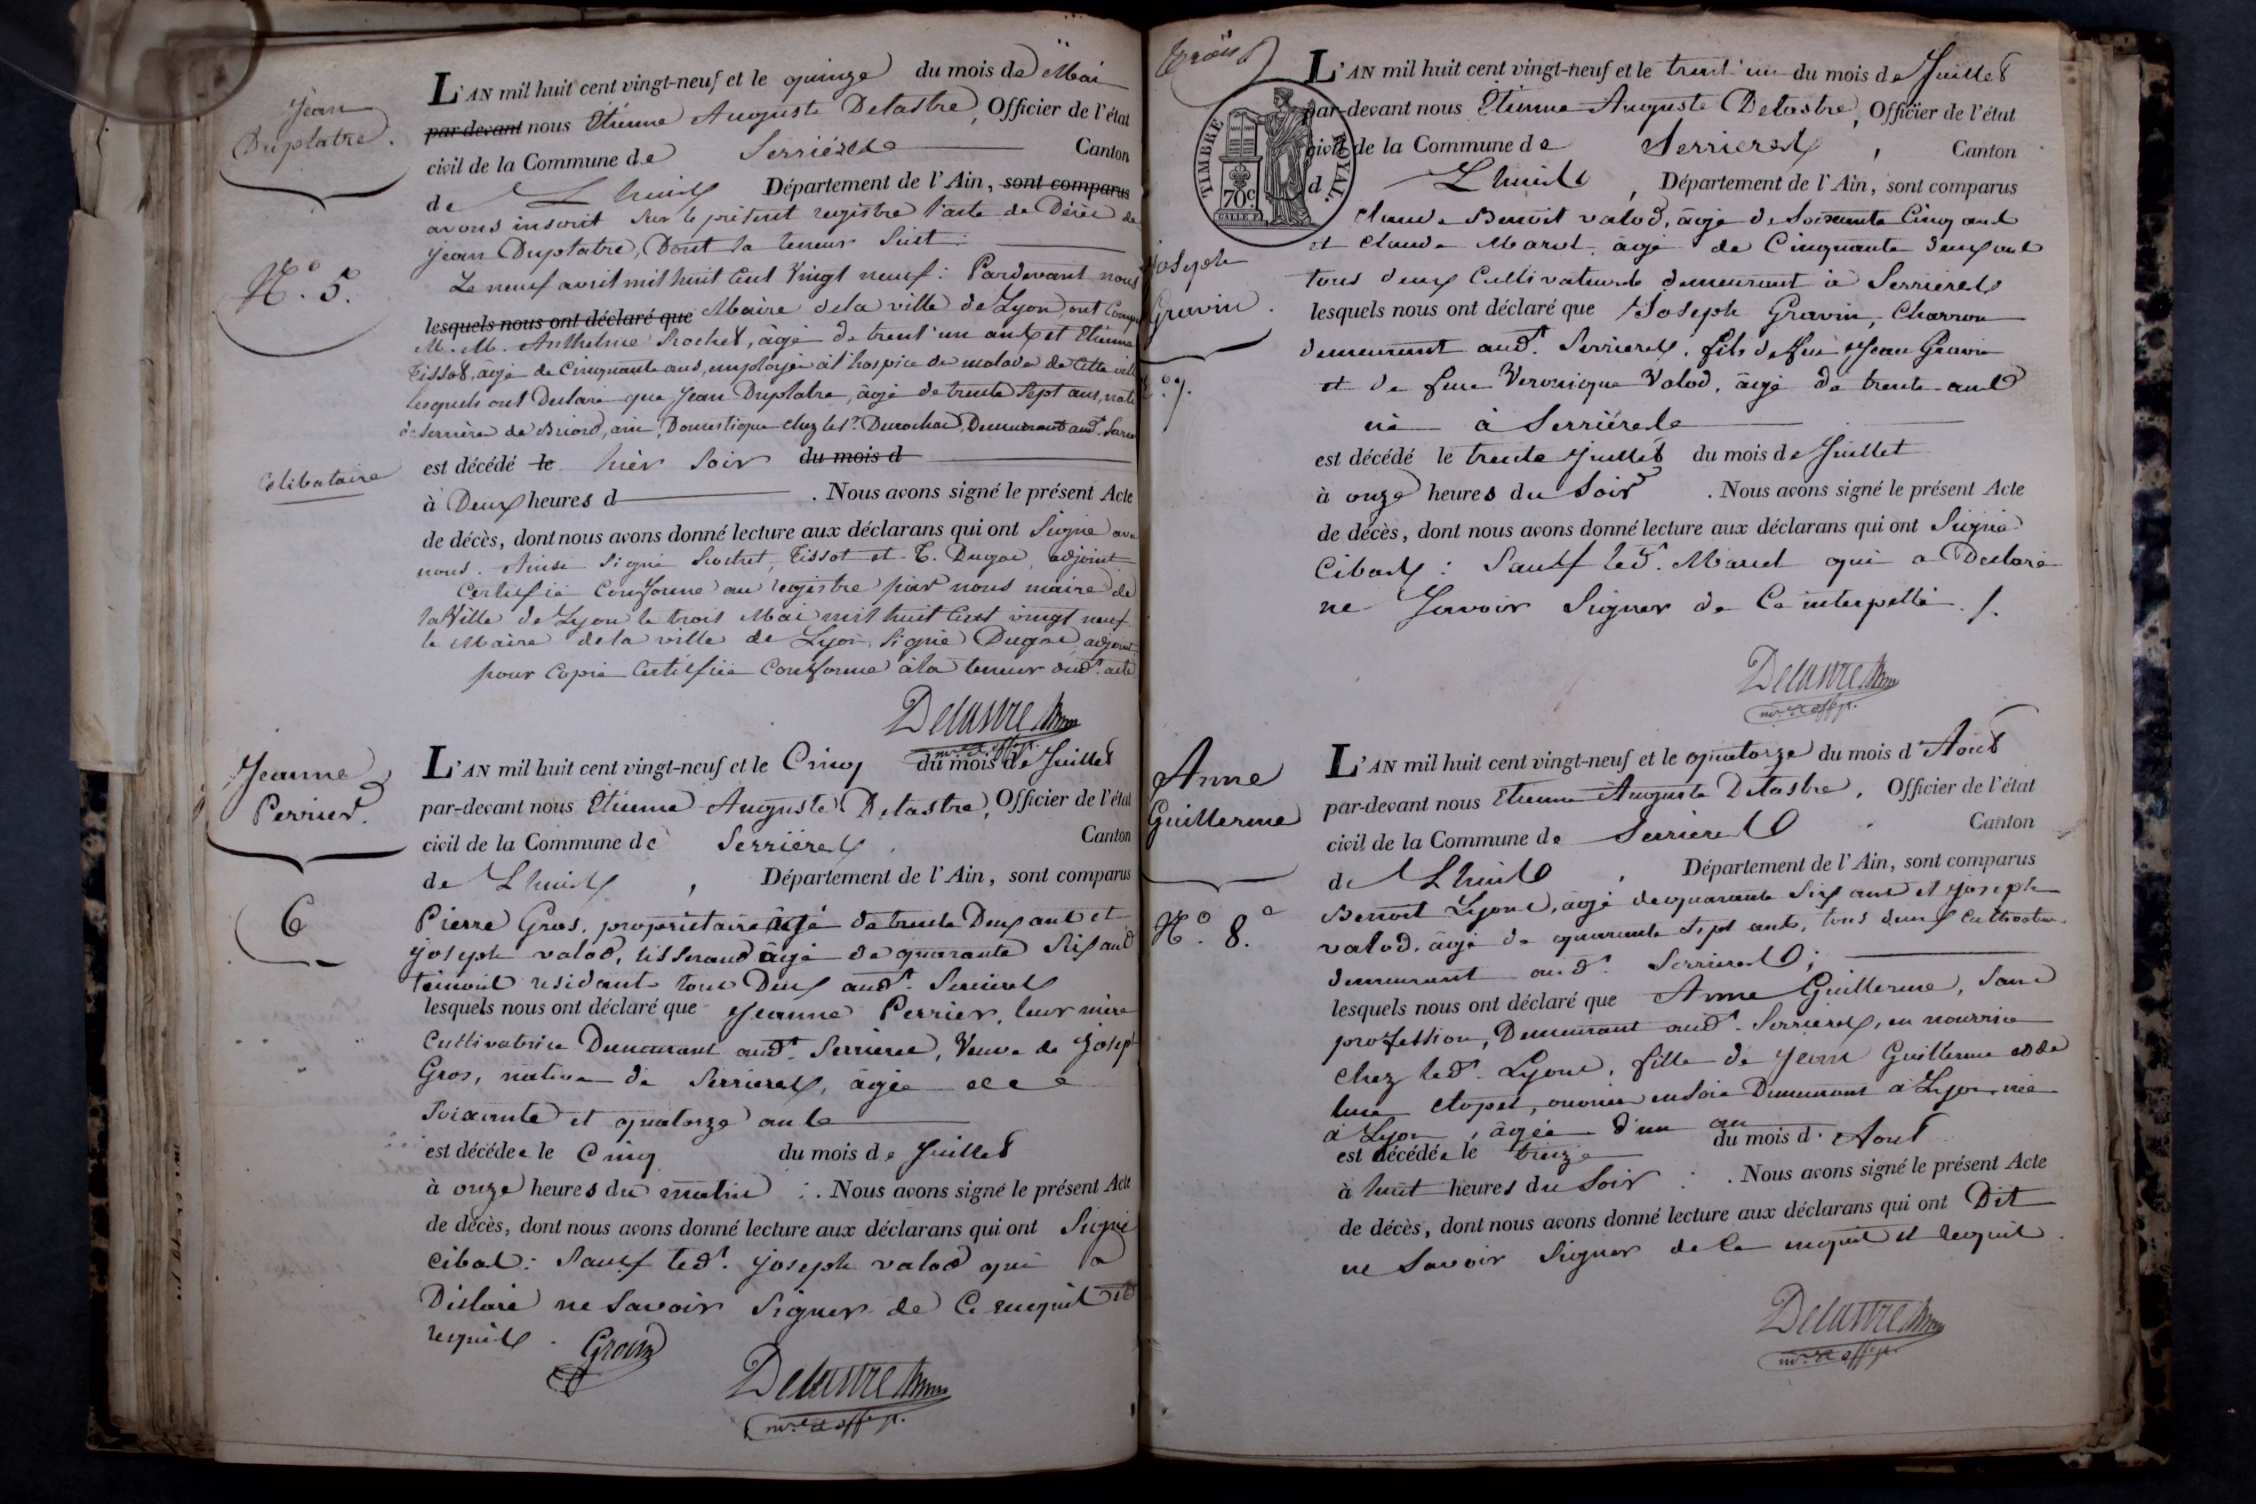 Jean
Duplatre.
N.° 5.
Célibataire
L'AN mil huit cent vingt-neuf et le quinze du mois de Mai
par-devant nous Etienne Auguste Delastre, Officier de l'état
civil de la Commune de Serrières Canton
de Lhuis Département de l'Ain, sont comparus
avons inscrit sur le présent registre l'acte de Décès de
Jean Duplatre, Dont la teneur Suit :
Le neuf avril mil huit Cent Vingt neuf : Pardevant nous
lesquels nous ont déclaré que Maire de la ville de Lyon, ont
M. M. Anthelme Rochet, âgé de trent'un ans et Etienne
Tissot, âgé de Cinquante ans, employés à l'hospice de malade de Cette
lesquels ont Déclaré que Jean Duplatre, âgé de trente Sept ans, natif
de Serrière de Briord, ain, Domestique chez le Sr. Demeurant aud.
est décédé le hier Soir du mois d
à Deux heures d . Nous avons signé le présent Acte
de décès, dont nous avons donné lecture aux déclarans qui ont Signé
nous. Ainsi Signé Rochet, Tissot et T. Dugas, adjoint
Certifié Conforme au registre par nous maire de
la Ville de Lyon le trois Mai mil huit Cent vingt neuf.
le Maire de la ville de Lyon, Signé Dugas adjoint
pour Copie Certifiée Conforme à la teneur dud.t acte
Delastre
Jeanne
Perrier.
6
L'AN mil huit cent vingt-neuf et le Cinq du mois de Juillet
par-devant nous Etienne Auguste Delastre, Officier de l'état
civil de la Commune de Serrières Canton
de Lhuis, Département de l'Ain, sont comparus
Pierre Gros, propriétaire âgé de trente Deux ans et
joseph valod, tisserand âgé de quarante Six ans
témoins résidants tous Deux aud.t Serrières
lesquels nous ont déclaré que Jeanne Perrier, leur mère
Cultivatrice Demeurant aud.t Serrières, Veuve de Joseph
Gros, native de Serrières, âgée de
Soixante et quatorze ans
est décédée le Cinq du mois de Juillet
à onze heures du matin . Nous avons signé le présent Acte
de décès, dont nous avons donné lecture aux déclarans qui ont Signé
Cibas : Sauf led.t joseph valod qui a
Déclaré ne Savoir Signer de Ce enquit et
requis.
Gros
Delastre
Joseph
Gravin.
L'AN mil huit cent vingt-neuf et le trent'un du mois de Juillet
par-devant nous Etienne Auguste Delastre, Officier de l'état
civil de la Commune de Serrières, Canton
d Lhuis, Département de l'Ain, sont comparus
TIMBRE ROYAL.
70c
Claude Benoit valod, âgé de Soixante Cinq ans
et Claude Marel, âgé de Cinquante deux ans
tous deux Cultivateurs demeurant à Serrières
lesquels nous ont déclaré que Joseph Gravin, Charron
demeurant aud.t Serrières, fils de feu Jean Gravin
et de feue Veronique Valod, âgé de trente ans
né à Serrières
est décédé le trente Juillet du mois de Juillet
à onze heures du Soir . Nous avons signé le présent Acte
de décès, dont nous avons donné lecture aux déclarans qui ont Signé
Cibas : Sauf led.t Marel qui a Déclaré
ne Savoir Signer de Ce interpellé.
Delastre
Anne
Guillerme
N.° 8.e
L'AN mil huit cent vingt-neuf et le quatorze du mois d'Aout
par-devant nous Etienne Auguste Delastre, Officier de l'état
civil de la Commune de Serrières Canton
de Lhuis, Département de l'Ain, sont comparus
Benoit Lyone, âgé de quarante Six ans et joseph
valod, âgé de quarante Sept ans, tous deux Cultivateurs
demeurant aud.t Serrières ;
lesquels nous ont déclaré que Anne Guillerme, Sans
profession, Demeurant aud.t Serrières, en nourrice
chez led.t Lyone, fille de Jean Guillerme et de
ouvrier en Soie Demeurant à Lyon, née
à Lyon, âgée d'un an
est décédée le treize du mois d'Aout
à huit heures du Soir . Nous avons signé le présent Acte
de décès, dont nous avons donné lecture aux déclarans qui ont Dit
ne Savoir Signer de Ce enquis et requis.
Delastre